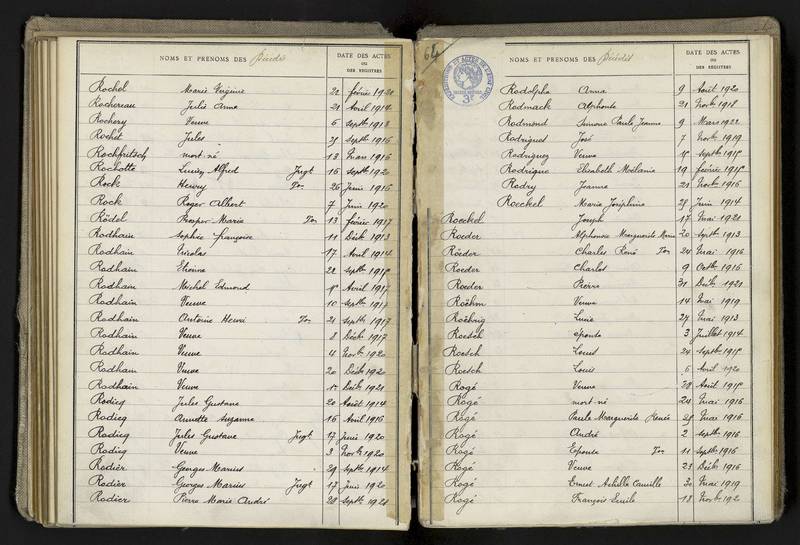 NOMS ET PRENOMS DES Décédés
DATE DES ACTES
OU
DES REGISTRES
Rochel Marie Virginie 22 février 1921
Rochereau Julie Anne 21 Avril 1914
Rochery Veuve 6 Septbre 1918
Rochet Jules Septbre 1916
Rochfritsch mort-né 18 Mars 1916
Rochotte Alfred Jugt 16 Septbre 1920
Rock Henry Ton 26 Juin 1916
Rock Roger Albert 7 Juin 1920
Rödel Prosper Marie Ton 13 février 1917
Rodhain Sophie françoise 11 Décb 1913
Rodhain Nicolas 17 Avril 1914
Rodhain Etienne 22 Septbre
Rodhain Michel Edmond Avril 1917
Rodhain Veuve 10 Septbre 1917
Rodhain Antoine Henri Ton 21 Septbre 1917
Rodhain Veuve 8 Décb 1917
Rodhain Veuve 4 Novb 1920
Rodhain Veuve 20 Décb 1920
Rodhain Veuve Décb 1921
Rodieg Jules Gustave 20 Août 1914
Rodieg Annette Suzanne 16 Avril 1916
Rodieg Jules Gustave Jugt 17 Juin 1920
Rodieg Veuve 3 Novb 1920
Rodier Georges Marius 29 Septbre 1914
Rodier Georges Marius Jugt 17 Juin 1920
Rodier Pierre Marie André 28 Septbre 1921
64
NOMS ET PRENOMS DES Décédés
DATE DES ACTES
OU
DES REGISTRES
3F
Rodolpha Anna 9 Avril 1920
Rodmack Alphonse 21 Novb 1918
Rodmond Simone Paule Jeanne 9 Mars 1922
Rodrigues José 7 Novb 1919
Rodriguez Veuve Septbre
Rodrigue Elisabeth Mélanie 19 février
Rodry Jeanne 21 Novb 1916
Roeckel Marie Joséphine Juin 1914
Roeckel Joseph 17 Mai 1921
Roeder Alphonsine Marguerite Marie 20 Septbre 1913
Röeder Charles René Ton 24 Mai 1916
Roeder Charles 9 Octbre 1916
Roeder Pierre 31 Décb 1921
Roëhm Veuve 14 Mai 1919
Roëhrig Lucie 27 Mai 1913
Roesch épouse 3 Juillet 1914
Roesch Louis 24 Septbre
Roesch Louis 6 Avril 1920
Rogé Veuve Août
Rogé mort-né 24 Mai 1916
Rogé Paule Marguerite Renée Mai 1916
Rogé André 2 Septbre 1916
Rogé Epouse Ton 11 Septbre 1916
Rogé Veuve 23 Décb 1916
Rogé Ernest Achille Camille 30 Mai 1919
Rogé François Emile 18 Novb 192